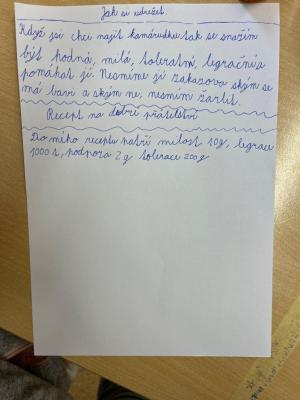 Jak si udržet
Když jsi chci najít kamárádku tak se snažím
být hodná, milá, toleratní, legrační, a
pomáhat jí. Nesmíme jí zakazova s kým se
má bavi a s kým ne, nesmím žarlit.
Recept na dobré přátelství
Do mého receptu patří milost 10g, legrace
1000 t, podpora 2 g tolerace 200g